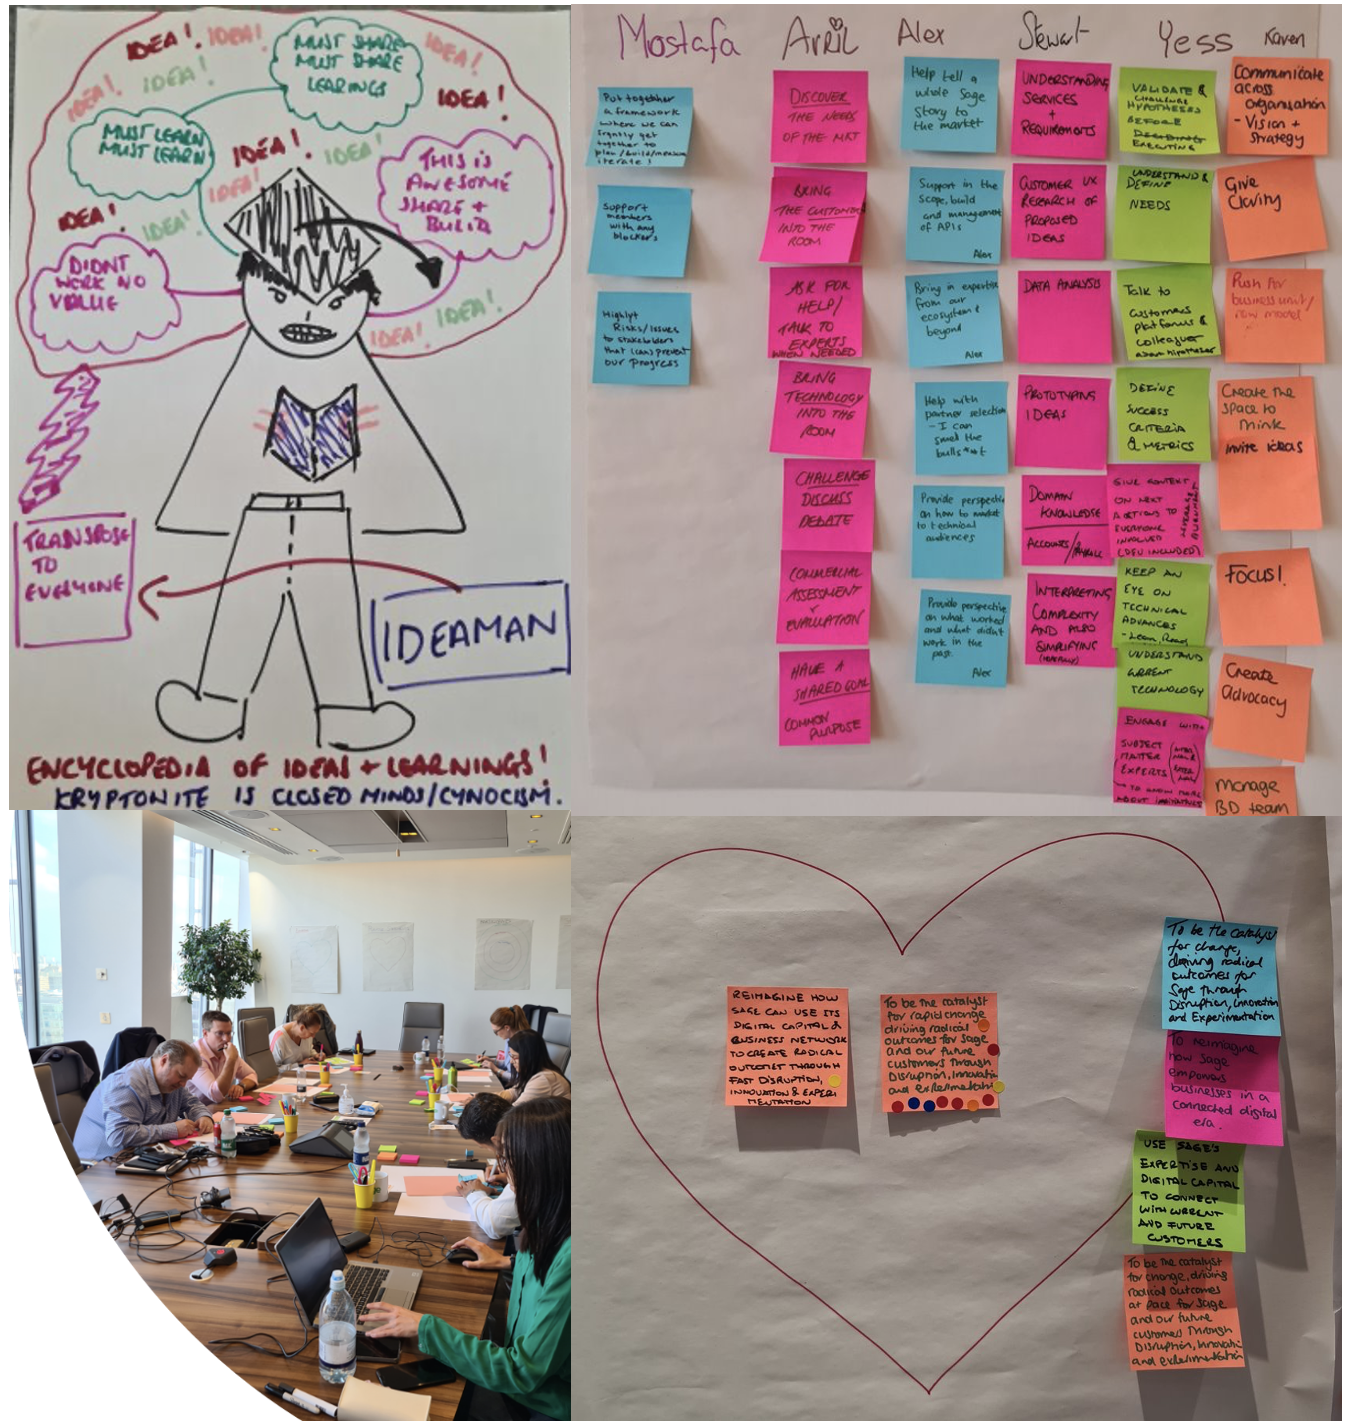 IDEA!
IDEA!
IDEA!
MUST SHARE
MUST SHARE
LEARINGS
IDEA!
IDEA!
IDEA!
MUST LEARN
MUST LEARN!
IDEA!
IDEA!
IDEA!
IDEA!
THIS IS
AWESOME
SHARE +
BUILD
IDEA!
IDEA!
DIDNT
WORK NO
VALUE
IDEA!
IDEA!
TRANSPOSE
TO
EVERYONE
IDEAMAN
ENCYCLOPEDIA OF IDEAS + LEARNINGS!
KRYPTONITE IS CLOSED MINDS/CYNOCISM.
Mostafa
Put together
a framework
where we can
together to
plan/build/measure
iterate!
Support
members
with any
blockers
Highlyt
Risks/Issues
to stakeholders
that (can) prevent
our progress
AVRIL
DISCOVER
THE NEEDS
OF THE MKT
BRING
THE CUSTOMER
INTO THE
ROOM
ASK FOR
HELP/
TALK TO
EXPERTS
WHEN NEEDED
BRING
TECHNOLOGY
INTO THE
ROOM
CHALLENGE
DISCUSS
DEBATE
COMMERCIAL
ASSESSMENT
+
EVALUATION
HAVE A
SHARED GOAL
COMMON
PURPOSE
Alex
Help tell a
whole Sage
Story to
the market
Support in the
Scope, build
and management
of APIs
Alex
Bring in expertise
from our
ecosystem &
beyond
Alex
Help with
partner selection
- I can
smell the
bulls**t
Provide perspective
on how to market
to technical
audiences
Provide perspective
on what worked
and what didn't
work in the
past.
Alex
Stewart
UNDERSTANDING
SERVICES
+
REQUIREMENTS
CUSTOMER UX
RESEARCH OF
PROPOSED
IDEAS
DATA ANALYSIS
PROTOTYPING
IDEAS
DOMAIN
KNOWLEDGE
ACCOUNTS/PAYROLL
INTERPRETING
COMPLEXITY
AND ALSO
SIMPLIFYING
(HOPEFULLY)
Yess
VALIDATE &
CHALLENGE
HYPOTHESES
BEFORE
EXECUTING
UNDERSTAND &
DEFINE
NEEDS
Talk to
Customers
platforms &
colleagues
about hypotheses
DEFINE
SUCCESS
CRITERIA
& METRICS
GIVE CONTEXT
ON NEXT
ACTIONS TO
EVERYONE
INVOLVED
(DEV INCLUDED)
KEEP AN
EYE ON
TECHNICAL
ADVANCES
- Learn, Read
UNDERSTAND
CURRENT
TECHNOLOGY
ENGAGE WITH
SUBJECT
MATTER
EXPERTS
TO KNOW MORE
ABOUT INITIATIVES
Karen
Communicate
across
organisation
- Vision +
Strategy
Give
Clarity
Push for
business unit/
new model
Create the
space to
think
Invite ideas
FOCUS!
Create
Advocacy
Manage
BD team
REIMAGINE HOW
SAGE CAN USE ITS
DIGITAL CAPITAL &
BUSINESS NETWORK
TO CREATE RADICAL
OUTCOMES THROUGH
FAST DISRUPTION,
INNOVATION & EXPERI
MENTATION
To be the catalyst
for rapid change
driving radical
outcomes for Sage
and our future
customers through
Disruption, Innovation
and experimentation
To be the catalyst
for change,
driving radical
outcomes for
Sage through
Disruption, Innovation
and Experimentation
To reimagine
how Sage
empowers
businesses in a
connected digital
era.
USE SAGE'S
EXPERTISE AND
DIGITAL CAPITAL
TO CONNECT
WITH CURRENT
AND FUTURE
CUSTOMERS
To be the catalyst
for change, driving
radical outcomes
at pace for Sage
and our future
customers through
Disruption, Innovation
and experimentation